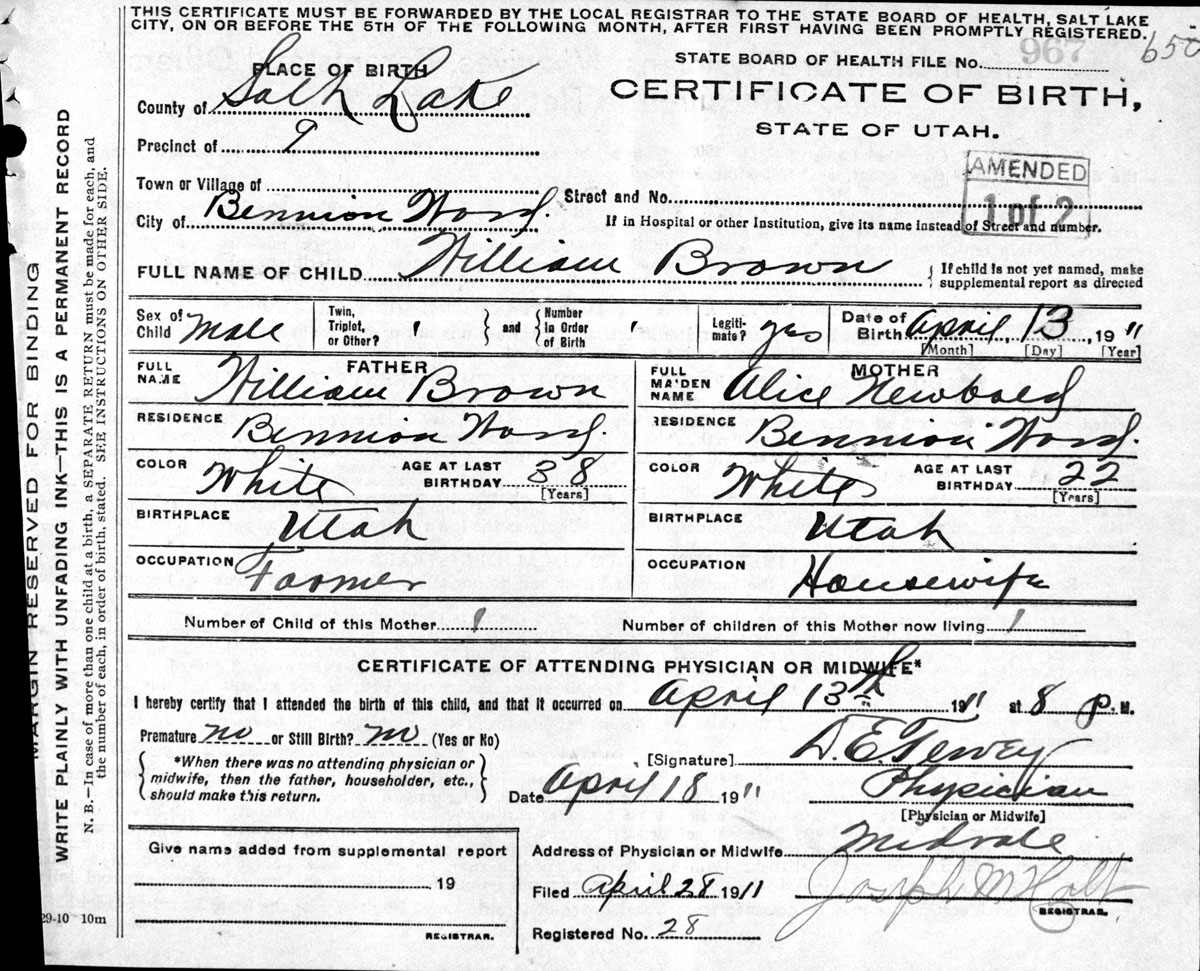 THIS CERTIFICATE MUST BE FORWARDED BY THE LOCAL REGISTRAR TO THE STATE BOARD OF HEALTH, SALT LAKE
CITY, ON OR BEFORE THE 5TH OF THE FOLLOWING MONTH, AFTER FIRST HAVING BEEN PROMPTLY REGISTERED.
650
PLACE OF BIRTH
STATE BOARD OF HEALTH FILE No. 967
County of Salt Lake
CERTIFICATE OF BIRTH,
Precinct of 9
STATE OF UTAH.
AMENDED
1 of 2
Town or Village of
Street and No.
City of Bennion Ward.
If in Hospital or other Institution, give its name instead of Street and number.
FULL NAME OF CHILD William Brown
If child is not yet named, make
supplemental report as directed
Sex of Child Male Twin, Triplet, or Other? 1 and Number in Order of Birth Legiti-mate? yes Date of Birth April, 13, 1911
[Month] [Day] [Year]
FATHER MOTHER
FULL NAME William Brown FULL MAIDEN NAME Alice Newbold
RESIDENCE Bennion Ward RESIDENCE Bennion Ward.
COLOR White AGE AT LAST BIRTHDAY 38 [Years] COLOR White AGE AT LAST BIRTHDAY 22 [Years]
BIRTHPLACE Utah BIRTHPLACE Utah
OCCUPATION Farmer OCCUPATION Housewife
Number of Child of this Mother 1 Number of children of this Mother now living 1
CERTIFICATE OF ATTENDING PHYSICIAN OR MIDWIFE*
I hereby certify that I attended the birth of this child, and that it occurred on April 13th 1911 at 8 P. M.
Premature no or Still Birth? no (Yes or No)
[Signature]
*When there was no attending physician or
midwife, then the father, householder, etc.,
should make this return.
Date April 18 1911 Physician
[Physician or Midwife]
Give name added from supplemental report
Address of Physician or Midwife Midvale
19
Filed April 28 1911 Joseph M Holt
REGISTRAR.
REGISTRAR.
Registered No. 28
29-10 10m
MARGIN RESERVED FOR BINDING
WRITE PLAINLY WITH UNFADING INK—THIS IS A PERMANENT RECORD
N. B.—In case of more than one child at a birth, a SEPARATE RETURN must be made for each, and
the number of each, in order of birth, stated. SEE INSTRUCTIONS ON OTHER SIDE.